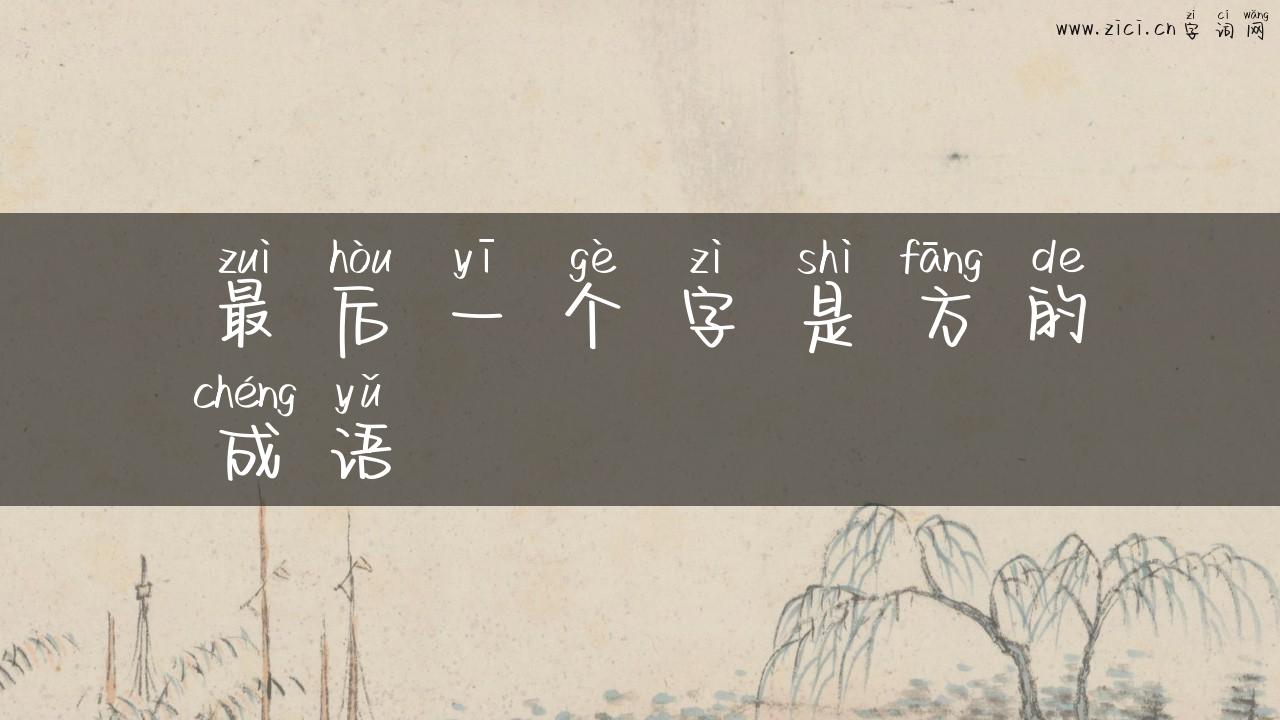 zì cí wǎng
www.zici.cn 字词网
zuì hòu yī gè zì shì fāng de
最后一个字是方的
chéng yǔ
成语